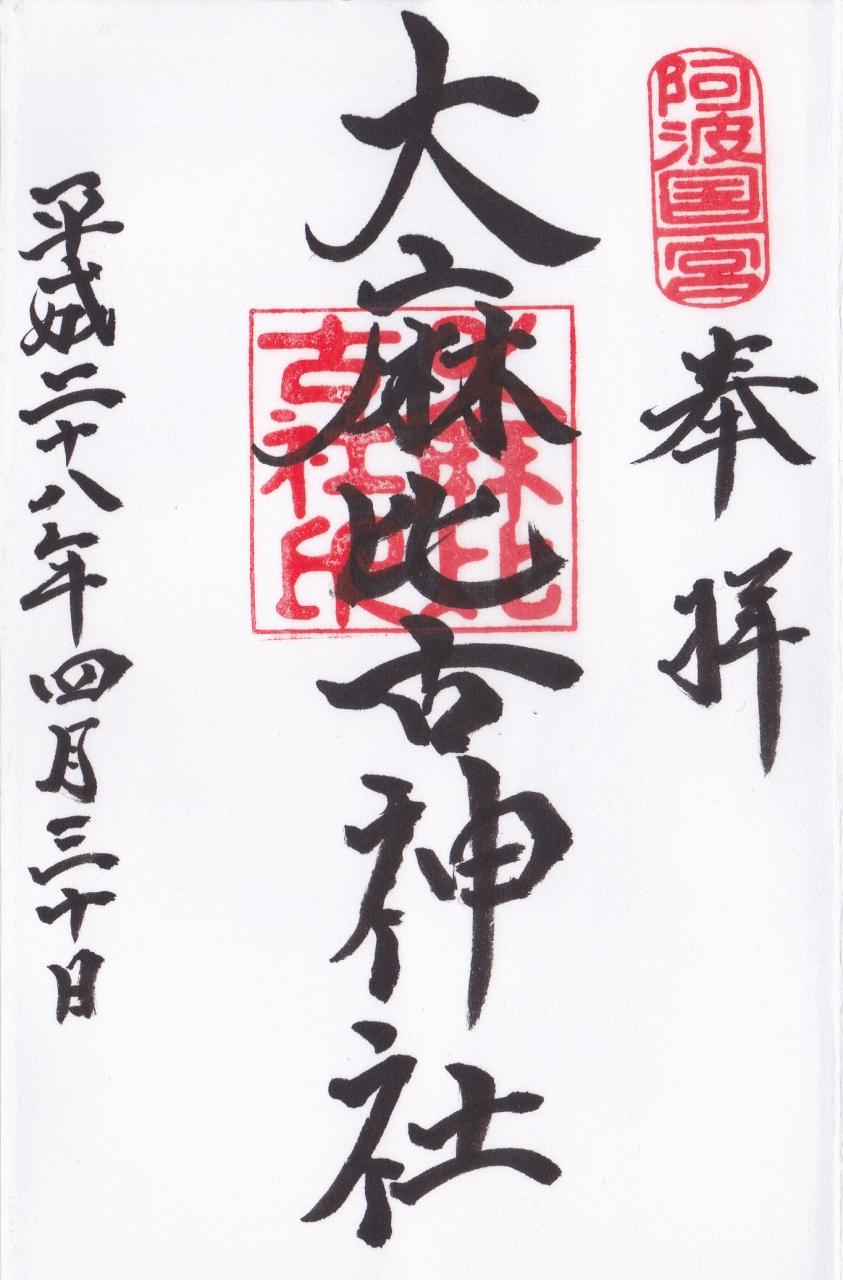 阿波国一宮
奉拝
大麻比古神社
大麻比
古社印
平成二十八年四月三十日